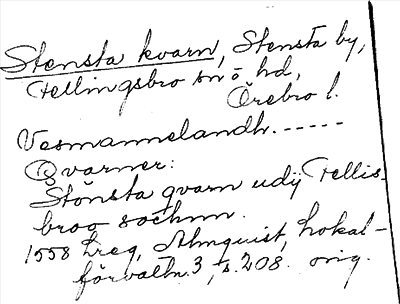 Stensta kvarn, Stensta by,
Fellingsbro sn o hd,
Örebro l.
Vesmannelandh. -----
Qvarner:
Stönsta qvarn udij Fellis-
broo sochnn.
1558 Lreg, Almquist, Lokal-
förvaltn. 3, s. 208. orig.